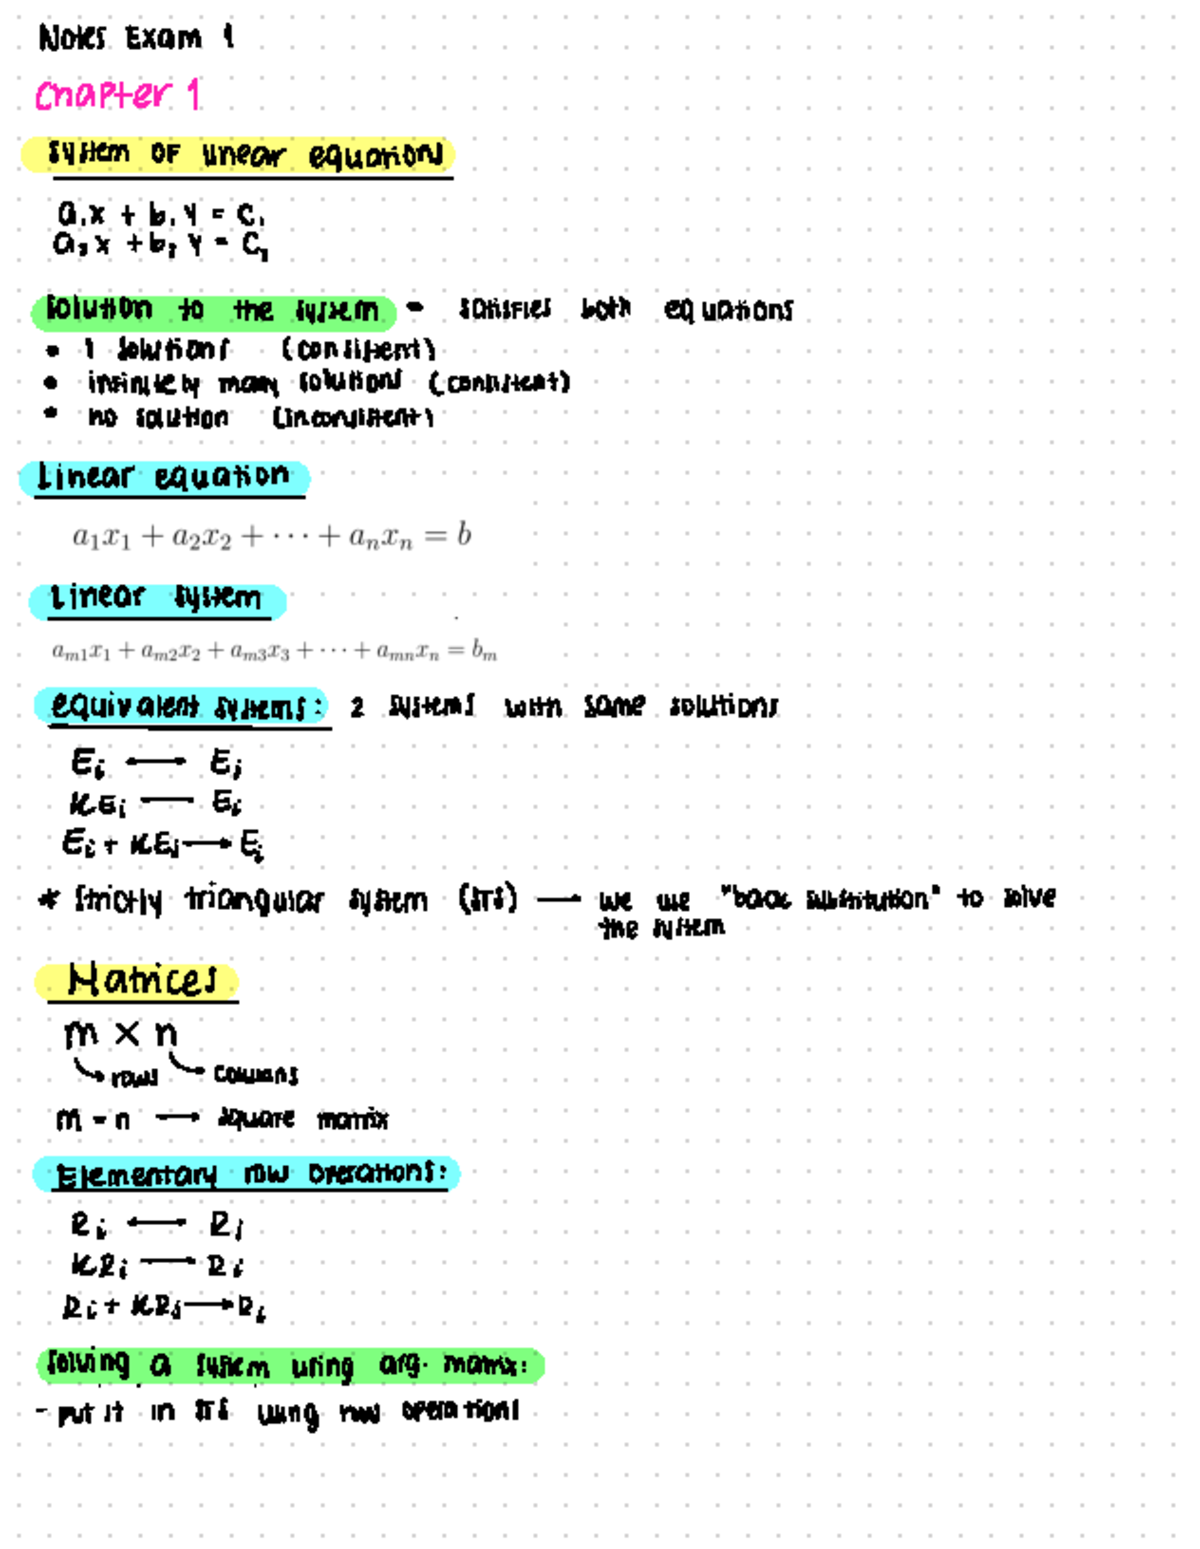 Notes Exam 1
Chapter 1
System of linear equations
a₁x + b₁y = c₁
a₂x + b₂y = c₂
Solution to the system - satisfies both equations
• 1 solutions (consistent)
• infinitely many solutions (consistent)
• no solution (inconsistent)
Linear equation
a₁x₁ + a₂x₂ + ··· + aₙxₙ = b
Linear system
aₘ₁x₁ + aₘ₂x₂ + aₘ₃x₃ + ··· + aₘₙxₙ = bₘ
equivalent systems: 2 systems with same solutions
Eᵢ ⟷ Eⱼ
KEᵢ — Eᵢ
Eᵢ + KEⱼ → Eᵢ
* Strictly triangular system (STS) → we use "back substitution" to solve
the system
Matrices
m × n
rows columns
m = n → square matrix
Elementary row operations:
Rᵢ ⟷ Rⱼ
KRᵢ → Rᵢ
Rᵢ + KRⱼ → Rᵢ
Solving a system using arg. matrix:
- put it in STS using row operations